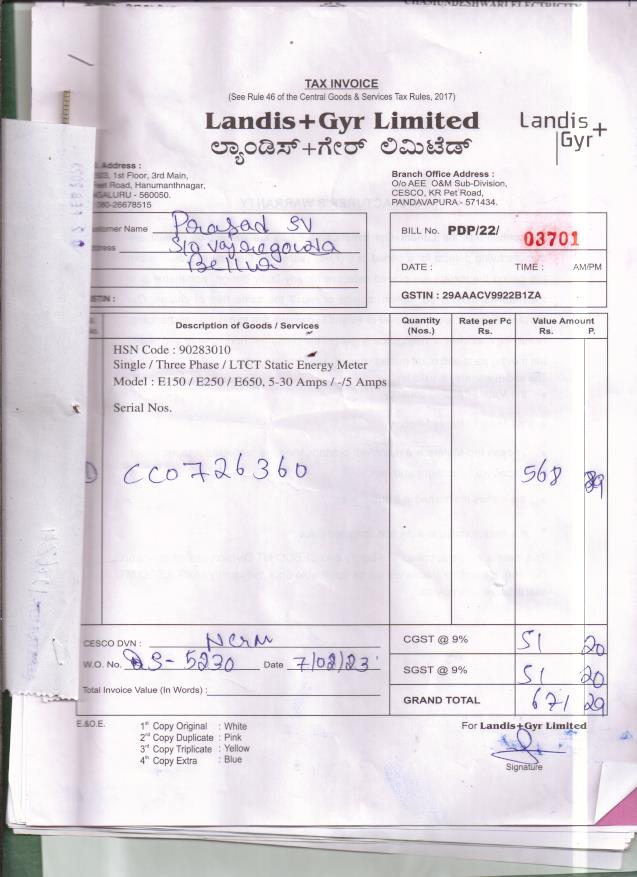 CHAMUNDESHWARI ELECTRICITY
TAX INVOICE
(See Rule 46 of the Central Goods & Services Tax Rules, 2017)
Landis+Gyr Limited
ಲ್ಯಾಂಡಿಸ್+ಗೇರ್ ಲಿಮಿಟೆಡ್
Landis+
Gyr
Address :
1st Floor, 3rd Main,
Road, Hanumanthnagar,
- 560050.
080-26678515
Branch Office Address :
O/o AEE O&M Sub-Division,
CESCO, KR Pet Road,
PANDAVAPURA:- 571434.
Customer Name Prasad SV
S/o
BILL No. PDP/22/ 03701
DATE : TIME : AM/PM
GSTIN :
GSTIN : 29AAACV9922B1ZA
Description of Goods / Services Quantity (Nos.) Rate per Pc Rs. Value Amount Rs. P.
HSN Code : 90283010
Single / Three Phase / LTCT Static Energy Meter
Model : E150 / E250 / E650, 5-30 Amps / -/5 Amps
Serial Nos.
CC0726360 568 89
CESCO DVN :
W.O. No. 5230 Date 7/02/23
Total Invoice Value (In Words) :
CGST @ 9% 51 20
SGST @ 9% 51 20
GRAND TOTAL 671 29
E.&O.E.
1st Copy Original : White
2nd Copy Duplicate : Pink
3rd Copy Triplicate : Yellow
4th Copy Extra : Blue
For Landis+Gyr Limited
Signature